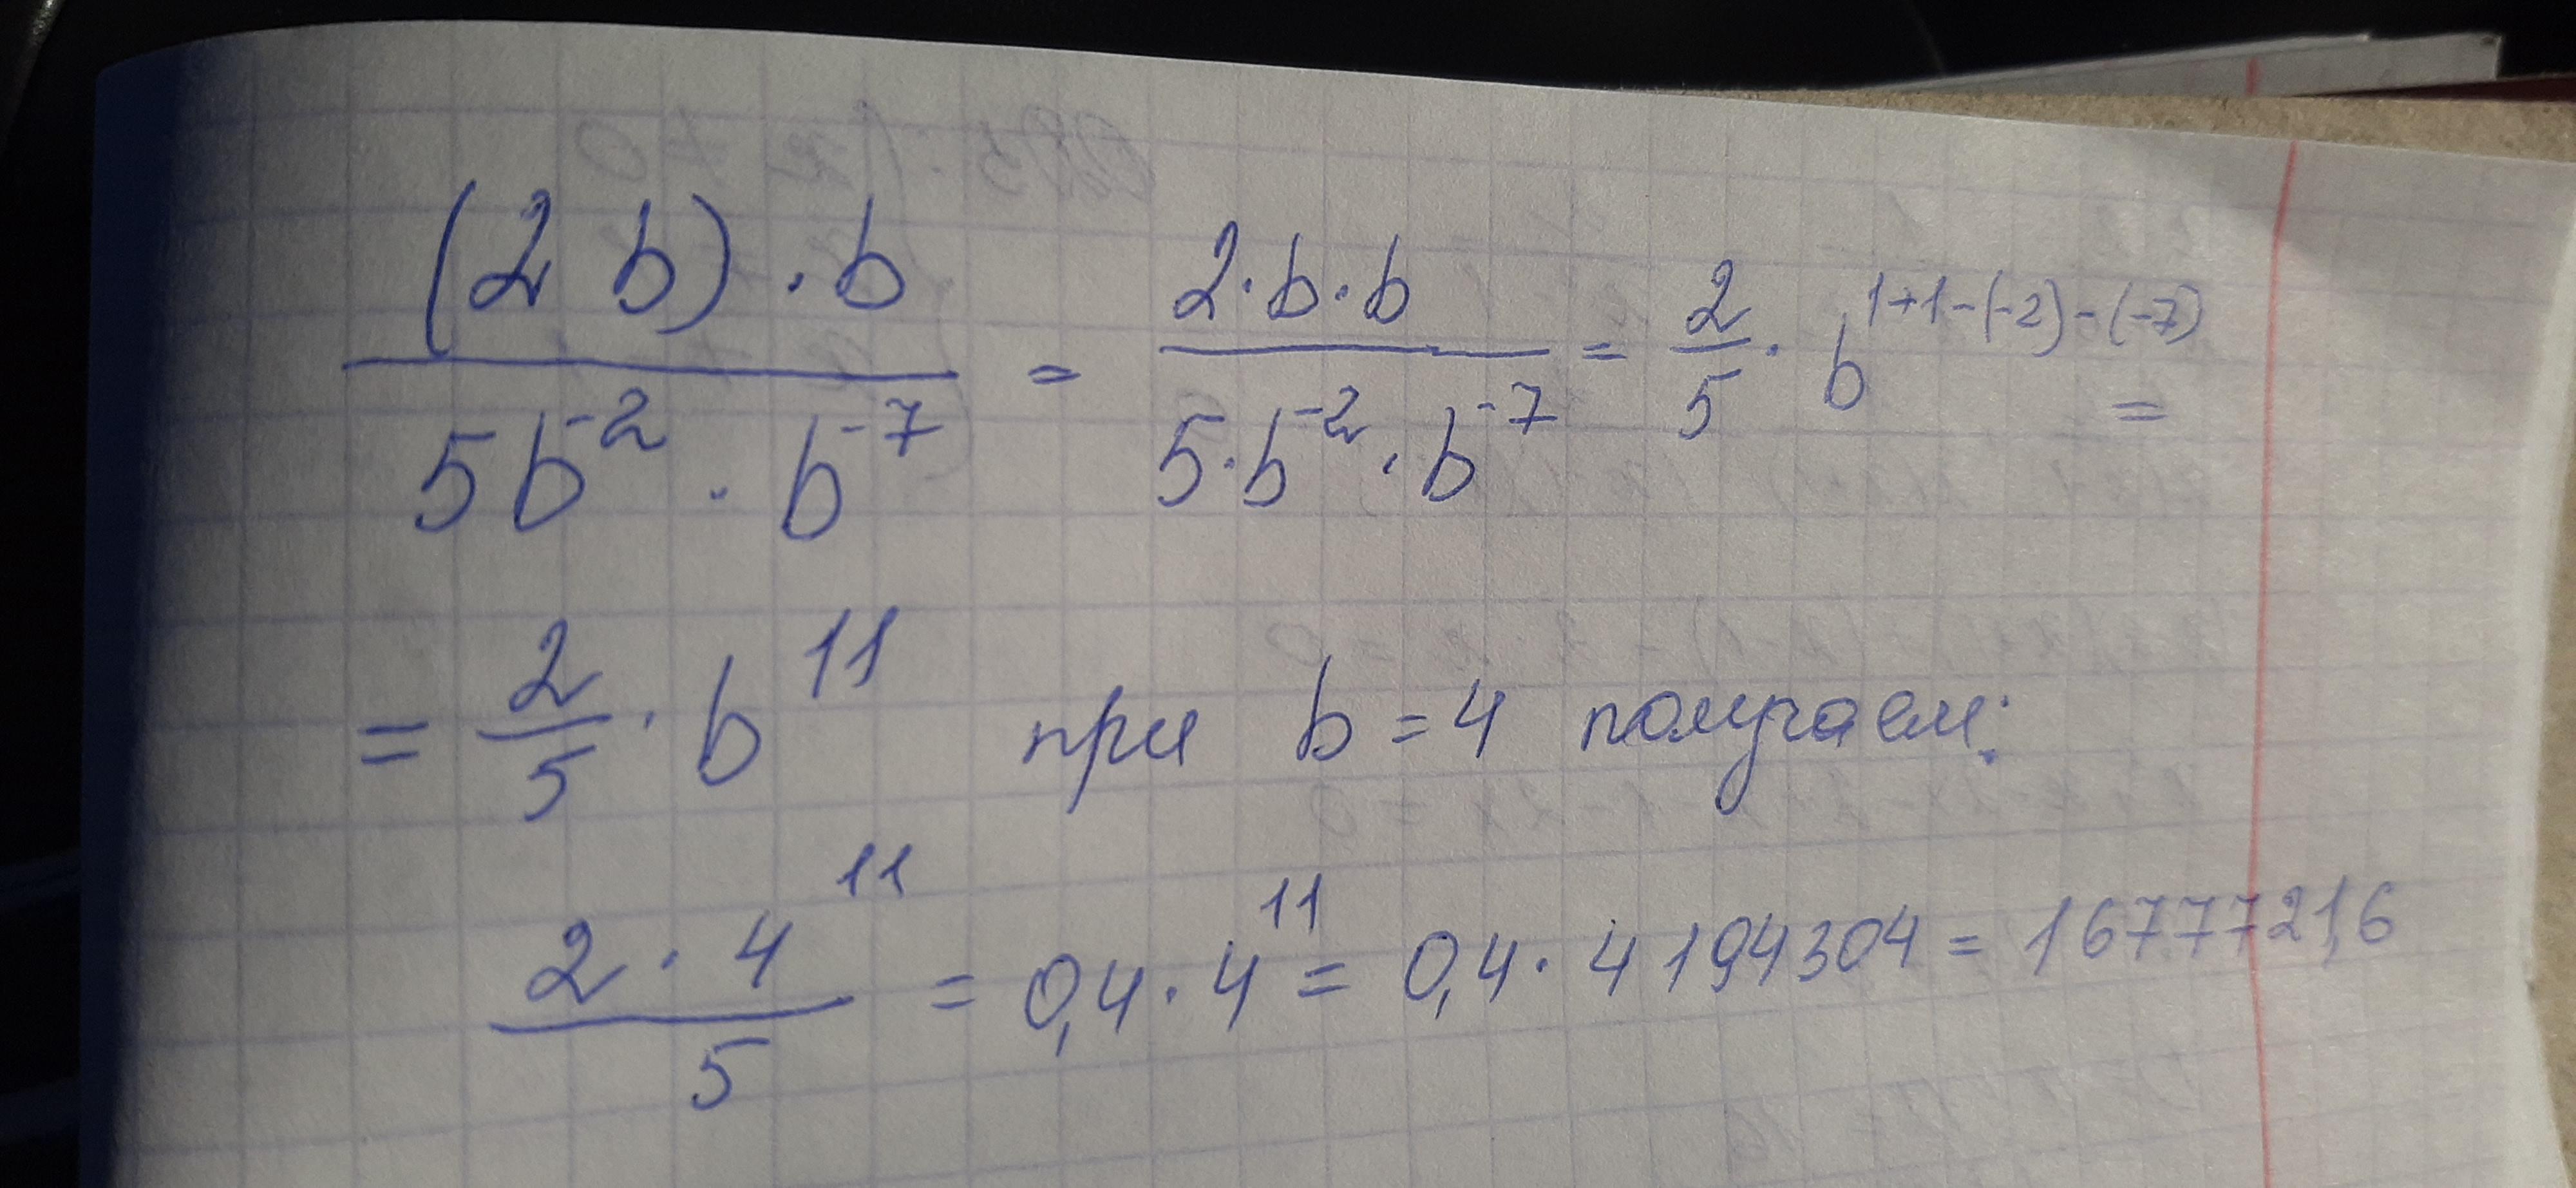 (2b)·b / 5b⁻²·b⁻⁷ = 2·b·b / 5·b⁻²·b⁻⁷ = 2/5 · b¹⁺¹⁻⁽⁻²⁾⁻⁽⁻⁷⁾ =
= 2/5 · b¹¹ при b = 4 получаем:
2·4¹¹ / 5 = 0,4·4¹¹ = 0,4·4194304 = 1677721,6